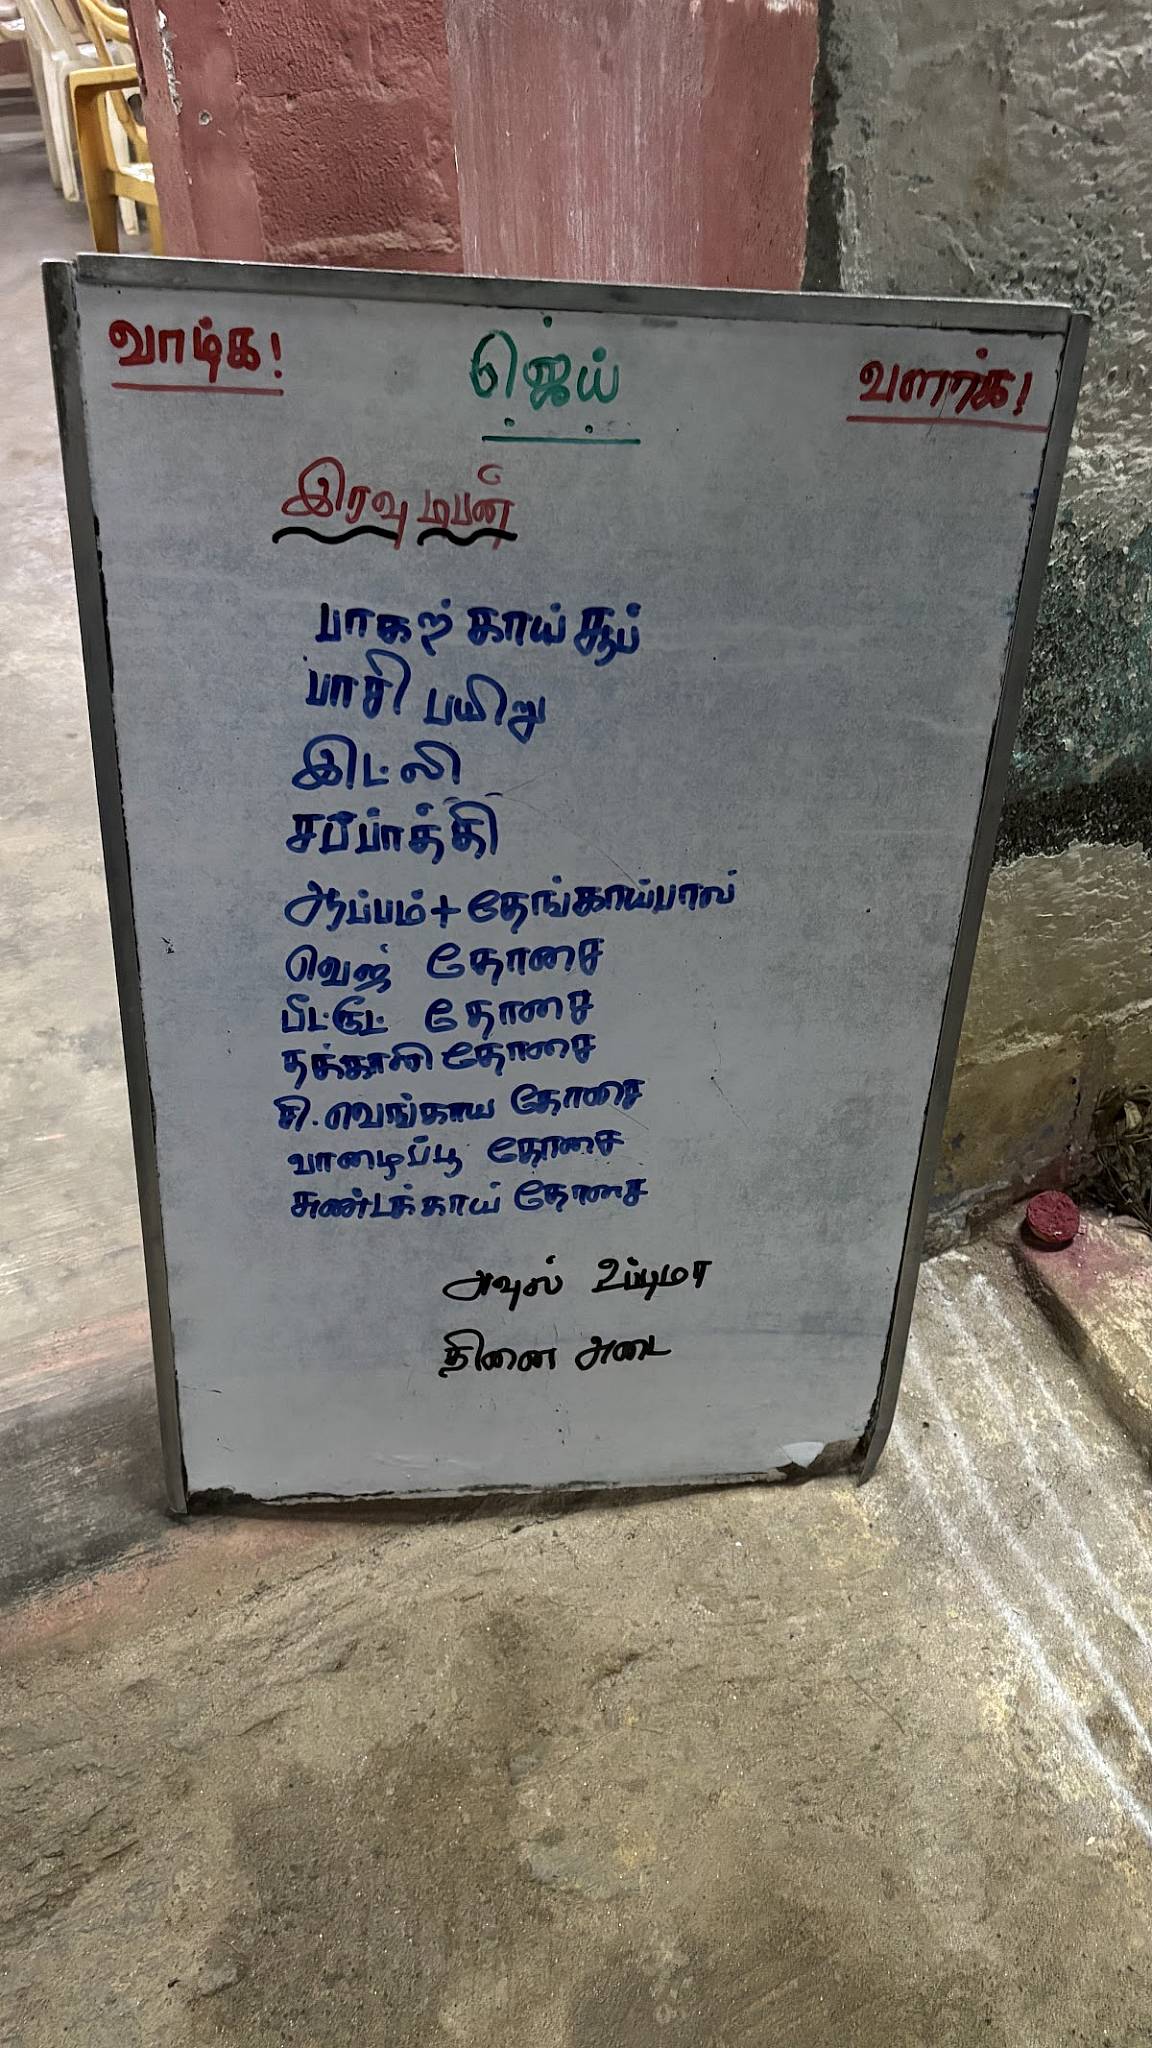 வாழ்க! ஜெய் வளர்க!
இரவு டிபன்
பாகற்காய் சூப்
பாசி பயிறு
இட்லி
சப்பாத்தி
ஆப்பம் + தேங்காய்பால்
வெஜ் தோசை
பீட்ரூட் தோசை
தக்காளி தோசை
சி.வெங்காய தோசை
வாழைப்பூ தோசை
சுண்டக்காய் தோசை
அவுல் உப்புமா
தினை அடை